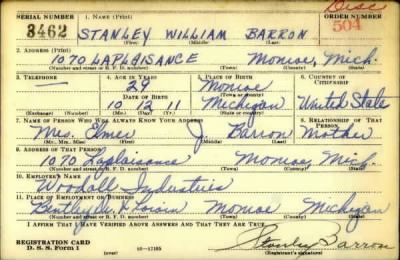 Disc
SERIAL NUMBER 1. NAME (Print) ORDER NUMBER
3462 STANLEY WILLIAM BARRON 504
(First) (Middle) (Last)
2. ADDRESS (Print)
1070 LAPLAISANCE Monroe, Mich.
(Number and street or R. F. D. number) (Town) (County) (State)
3. TELEPHONE 4. AGE IN YEARS 5. PLACE OF BIRTH 6. COUNTRY OF CITIZENSHIP
— 29 Monroe
DATE OF BIRTH
10 12 11 Michigan United States
(Mo.) (Day) (Yr.) (State or country)
7. NAME OF PERSON WHO WILL ALWAYS KNOW YOUR ADDRESS 8. RELATIONSHIP OF THAT PERSON
Mrs. Elmer J. Barron Mother
(Mr., Mrs., Miss) (First) (Middle) (Last)
9. ADDRESS OF THAT PERSON
1070 Laplaisance Monroe, Mich.
(Number and street or R. F. D. number) (Town) (County) (State)
10. EMPLOYER'S NAME
Woodall Industries
11. PLACE OF EMPLOYMENT OR BUSINESS
Monroe Michigan
(Number and street or R. F. D. number) (Town) (County) (State)
I AFFIRM THAT I HAVE VERIFIED ABOVE ANSWERS AND THAT THEY ARE TRUE.
REGISTRATION CARD
D. S. S. Form 1 16—17105 Stanley Barron
(Registrant's signature)